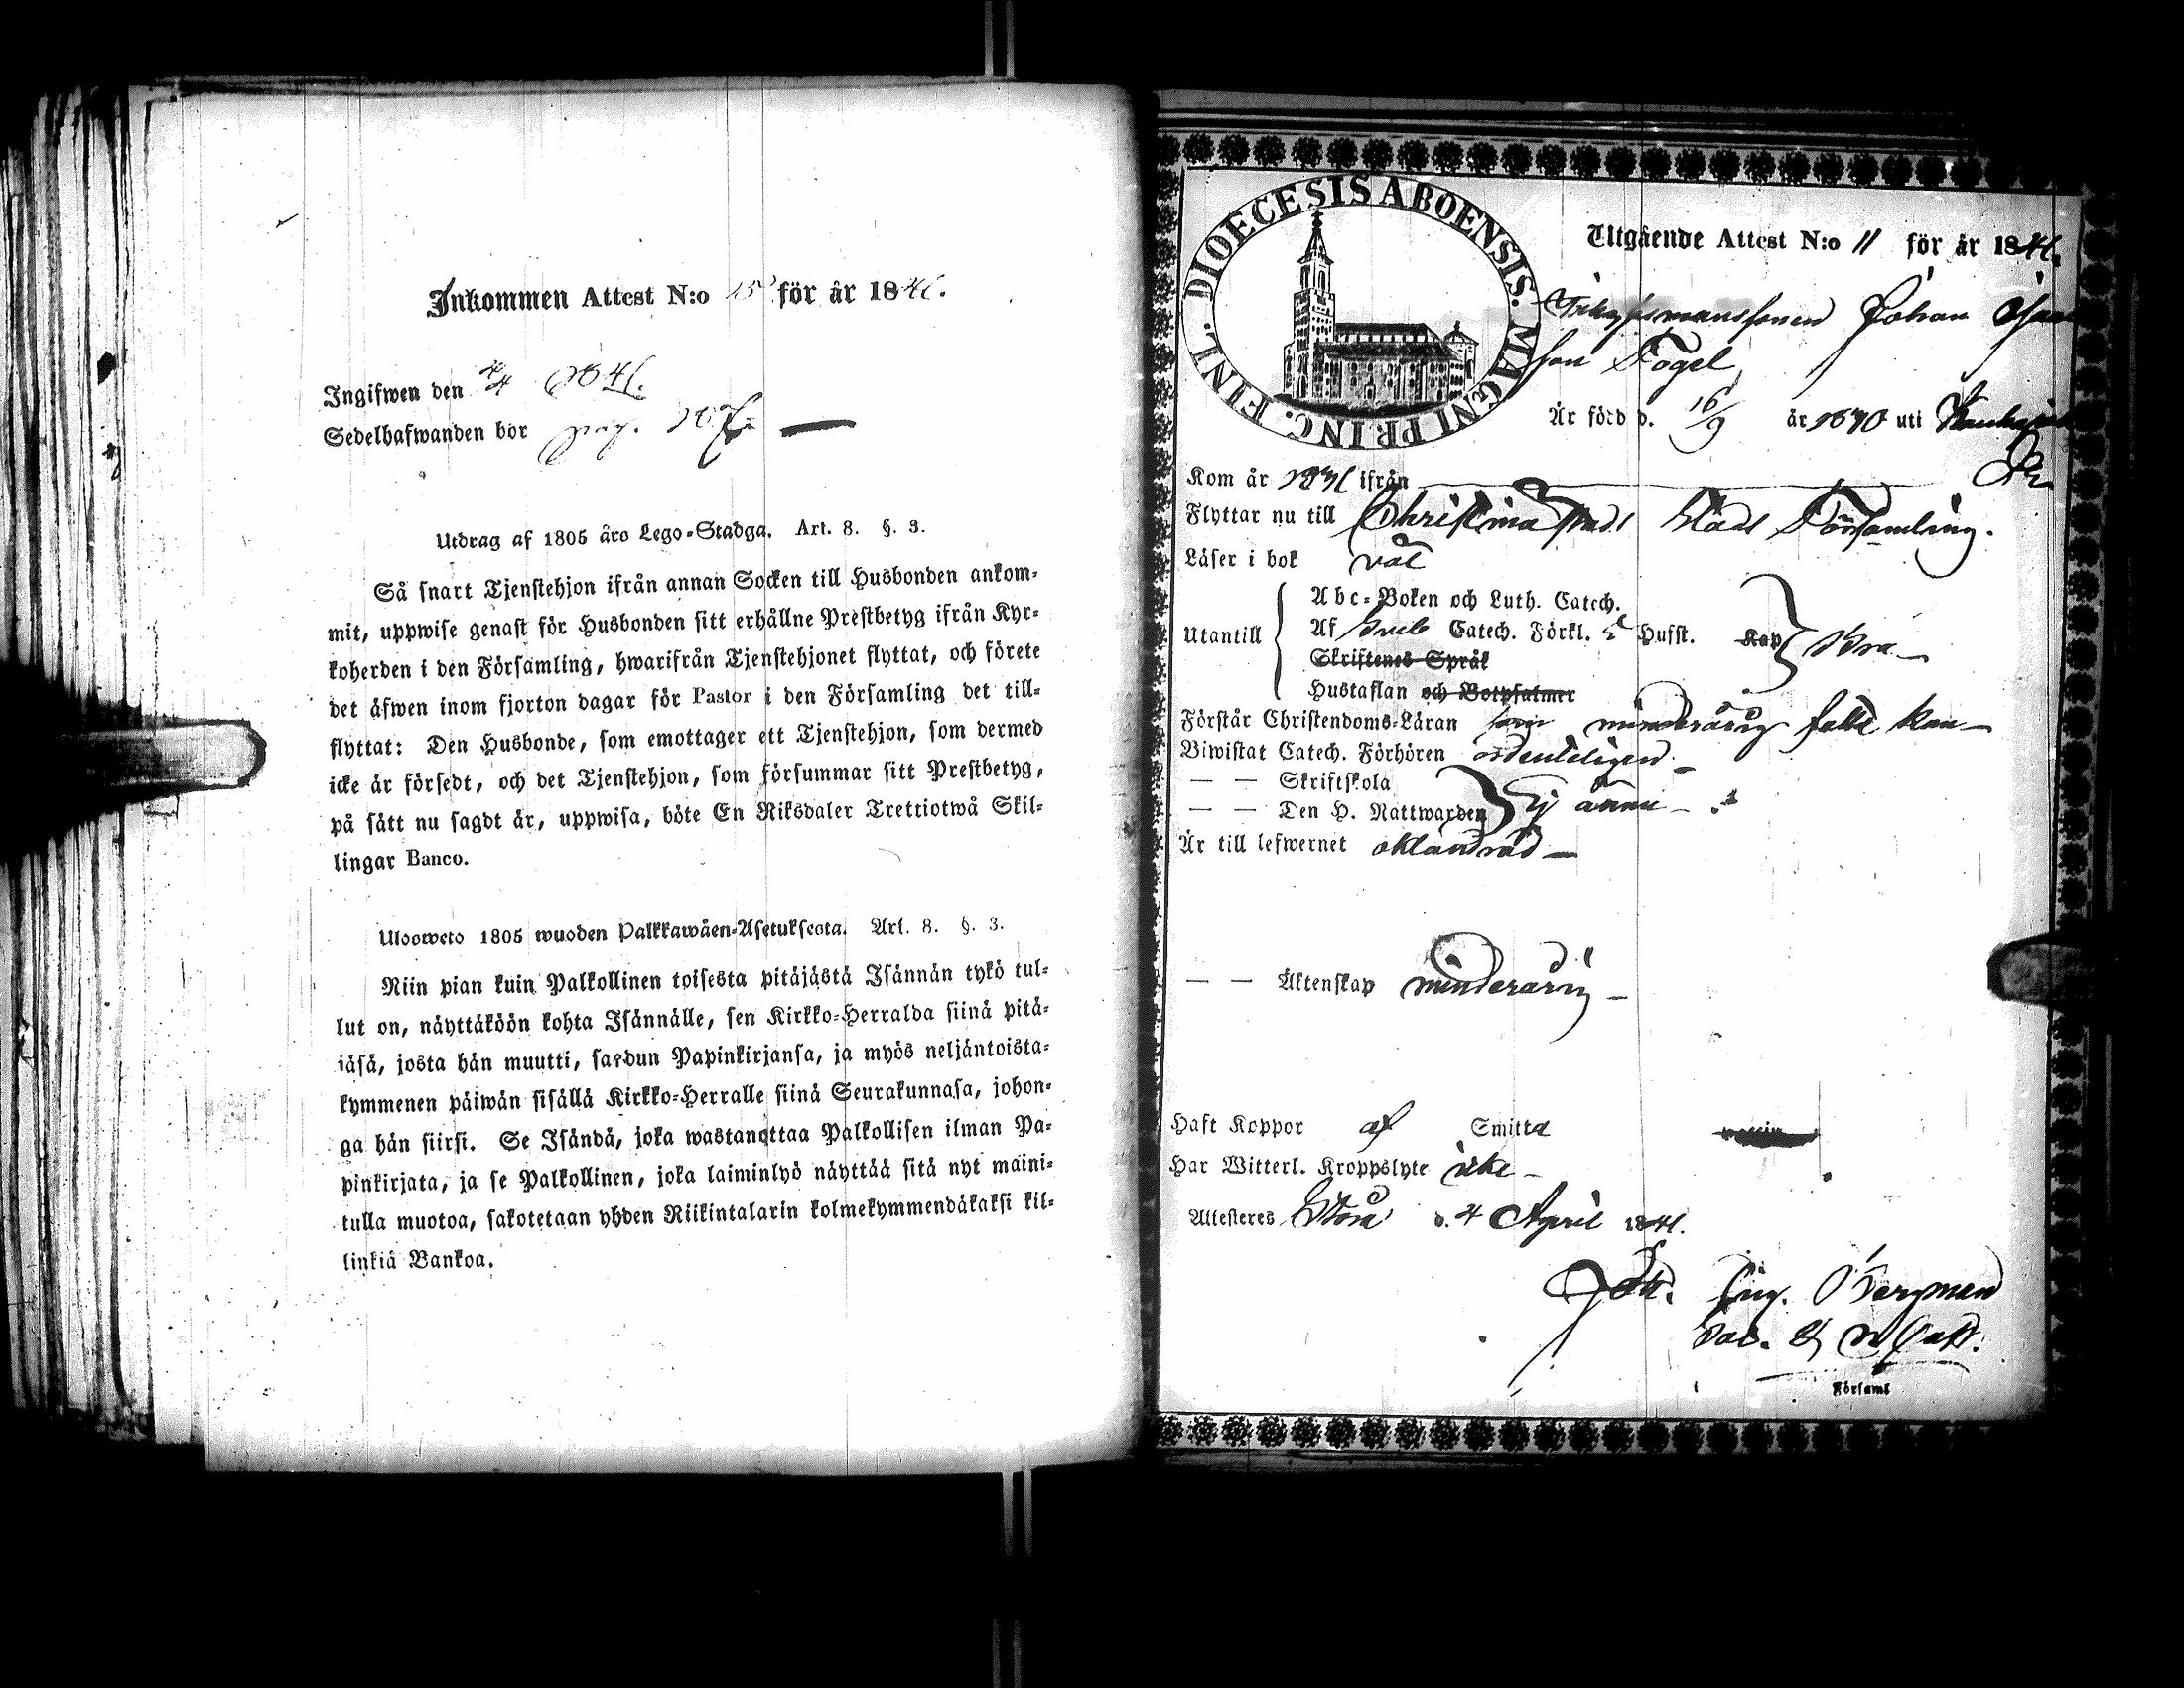 Inkommen Attest N:o 15 för år 1841.
Ingifwen den 4/4 1841.
Sedelhafwanden bor pag. 107.
Utdrag af 1805 års Lego-Stadga. Art. 8. §. 3.
Så snart Tjenstehjon ifrån annan Socken till Husbonden ankom-
mit, uppwise genast för Husbonden sitt erhållne Prestbetyg ifrån Kyr-
koherden i den Församling, hwarifrån Tjenstehjonet flyttat, och förete
det äfwen inom fjorton dagar för Pastor i den Församling det till-
flyttat: Den Husbonde, som emottager ett Tjenstehjon, som dermed
icke är försedt, och det Tjenstehjon, som försummar sitt Prestbetyg,
på sätt nu sagdt är, uppwisa, böte En Riksdaler Trettiotwå Skil-
lingar Banco.
Ulosweto 1805 wuoden Palkkawäen-Asetuksesta. Art. 8. §. 3.
Niin pian kuin Palkollinen toisesta pitäjästä Isännän tykö tul-
lut on, näyttäköön kohta Isännälle, sen Kirkko-Herralda siinä pitä-
jäsä, josta hän muutti, saadun Papinkirjansa, ja myös neljäntoista-
kymmenen päiwän sisällä Kirkko-Herralle siinä Seurakunnasa, johon-
ga hän siirsi. Se Isändä, joka wastanottaa Palkollisen ilman Pa-
pinkirjata, ja se Palkollinen, joka laiminlyö näyttää sitä nyt maini-
tulla muotoa, sakotetaan yhden Riikintalarin kolmekymmendäkaksi kil-
linkiä Bankoa.
DIOECESIS ABOENSIS. MAGNI PRINC. FINL.
Utgående Attest N:o 11 för år 1841.
Johan
son Fogel
Är född d. 16/9 år 18 uti
Kom år ifrån
Flyttar nu till Christinæstads Stads Församling.
Läser i bok väl
Utantill
Abc-Boken och Luth. Catech.
Af Sveb Catech. Förkl. Hufst. Kap
Skriftenes Språk
Hustaflan och Botpsalmer
bra
Förstår Christendoms-Läran som minderårig
Biwistat Catech. Förhören ordenteligen
— — Skriftskola
— — Den H. Nattwarden
Ej ännu
Är till lefwernet oklandrad
— — Äktenskap minderårig
Haft Koppor af Smitta
Har Witterl. Kroppslyte icke
Attesteras Storå d. 4 April 1841.
Joh. Bergman
Församl